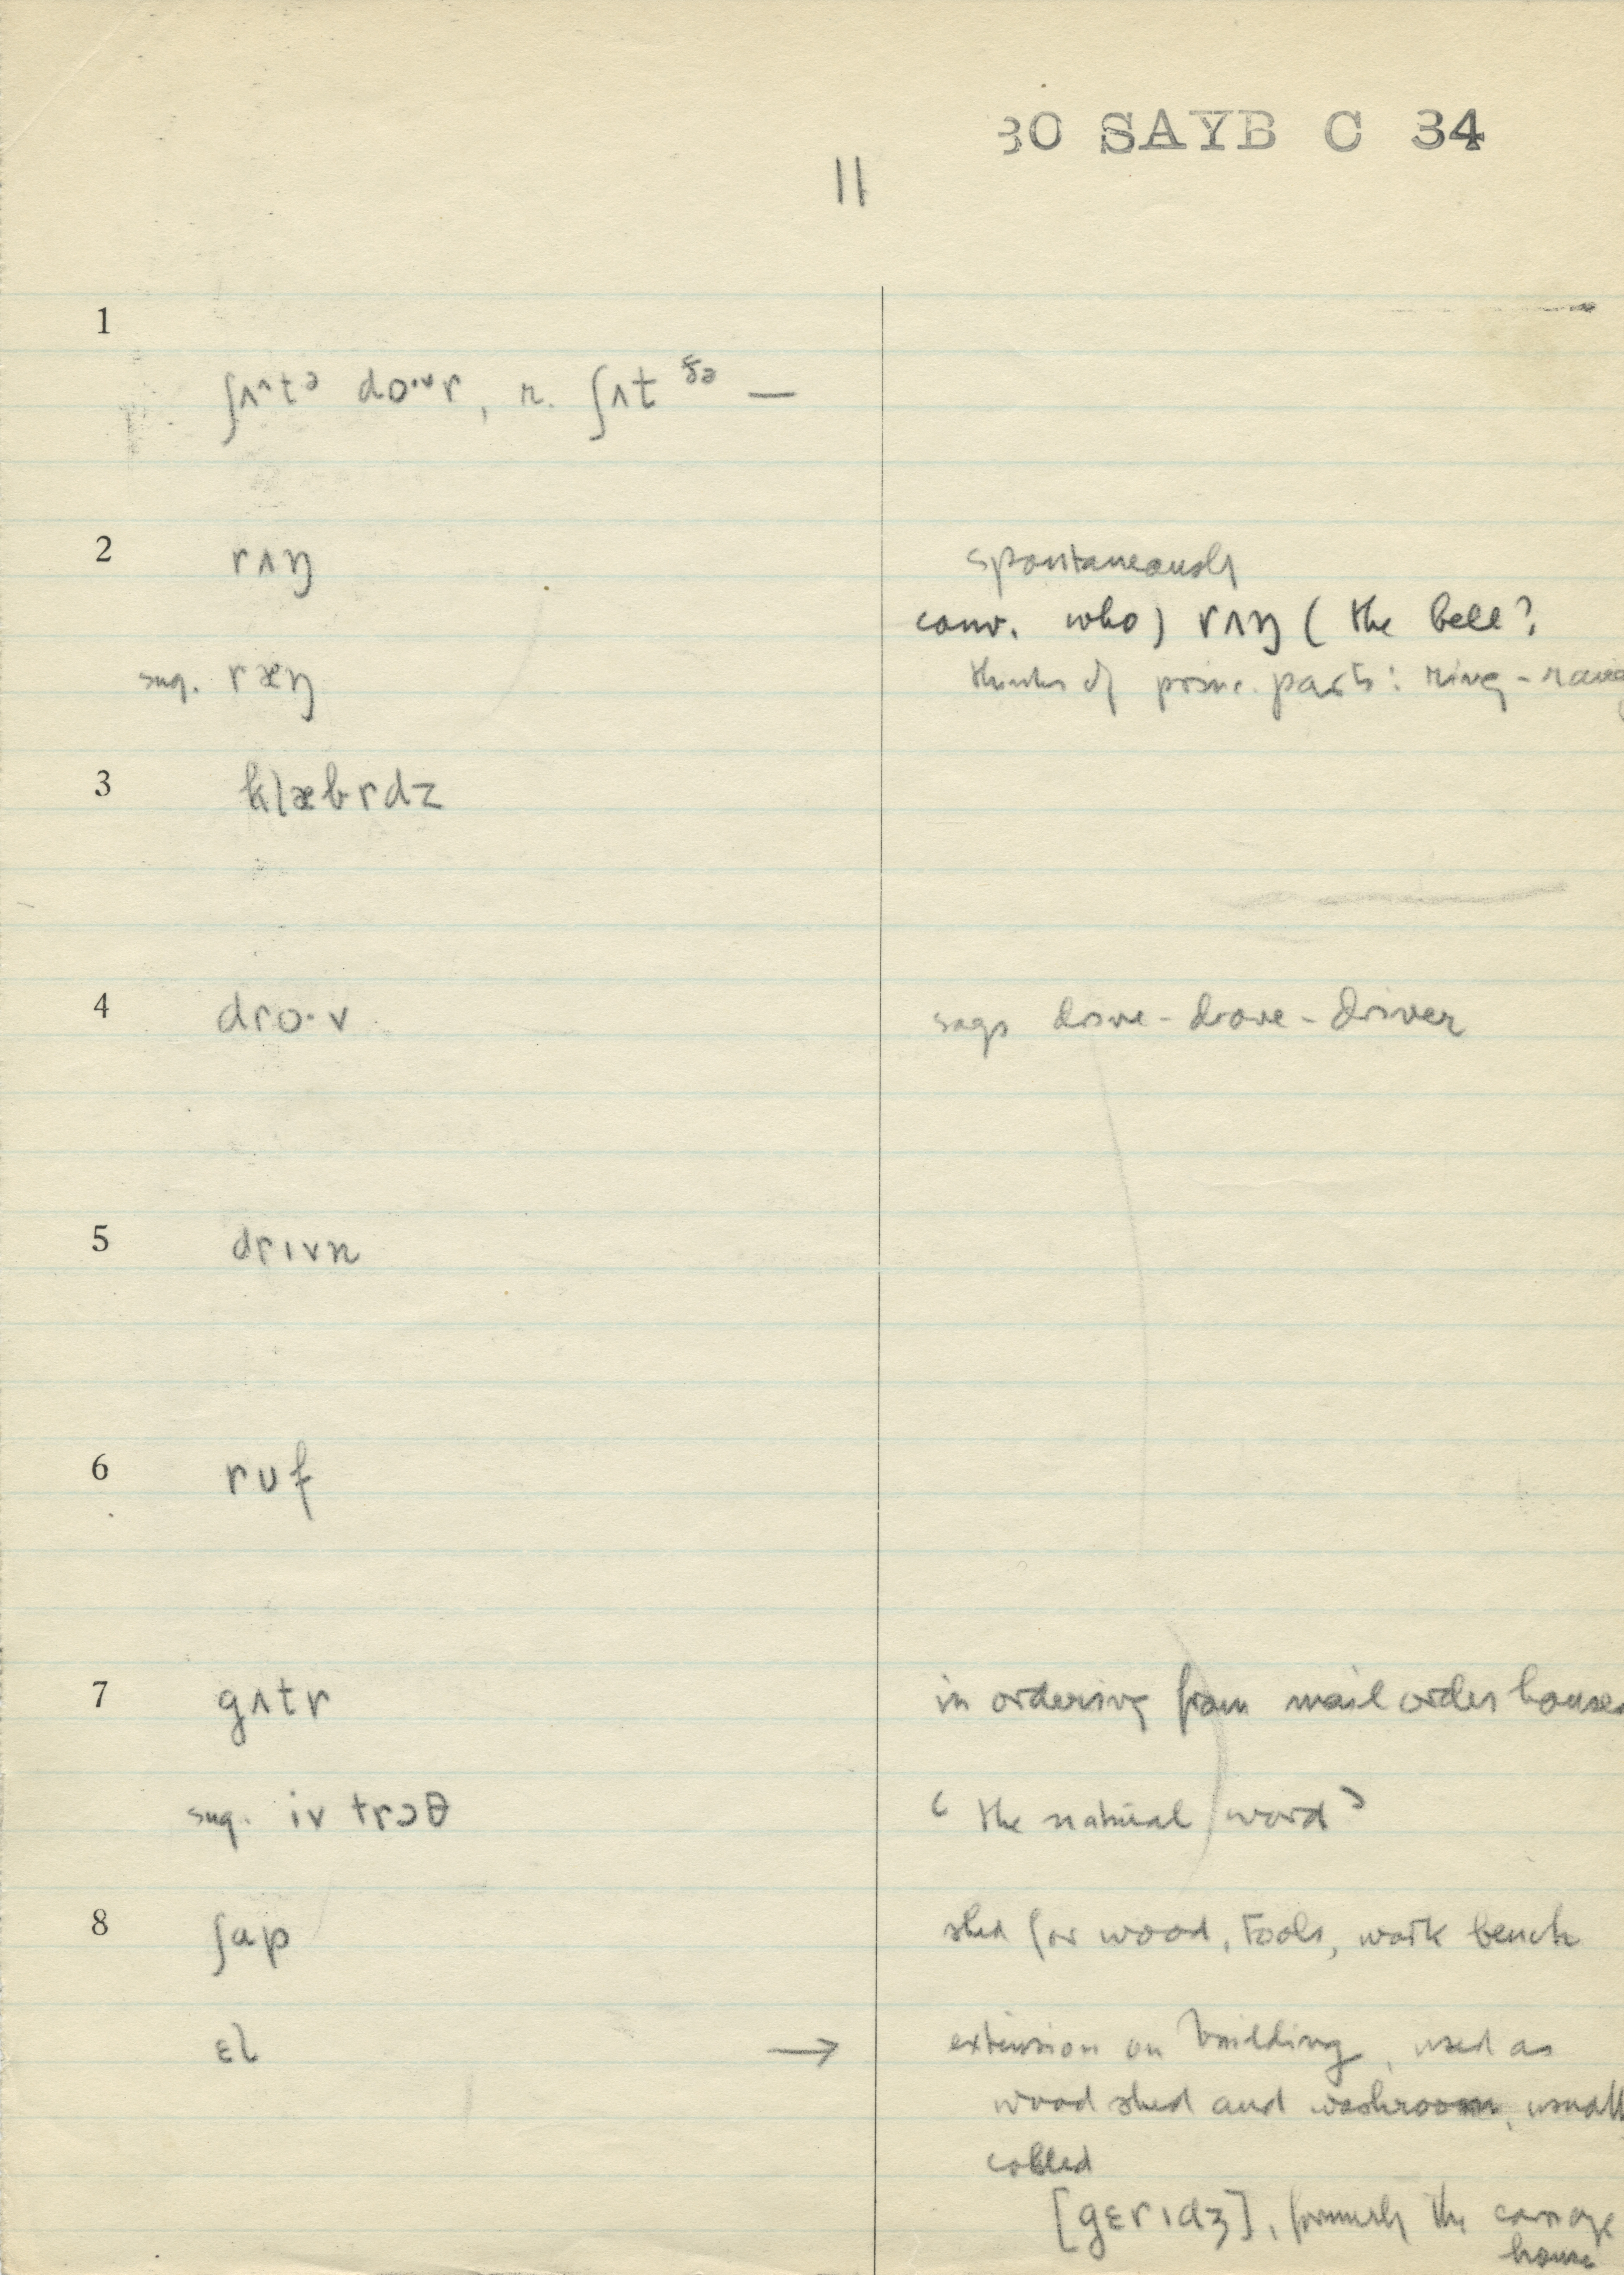 30 SAYB C 34
11
1
ʃʌ^tə do·ʊr, r. ʃʌt ðə —
2 rʌŋ spontaneously
conv. who) rʌŋ ( the bell?
sug. ræŋ thinks of princ. parts: ring - rang
3 klæbrdz
4 dro·v says drive - drove - driver
5 drɪvn
6 rʊf
7 gʌtr in ordering from mail order houses
sug. iv trɔθ ‘the natural word’
8 ʃap shed for wood, tools, work bench
ɛl → extension on building, used as
wood shed and washroom, usually
called
[gɛrɪdʒ], formerly the carriage
house